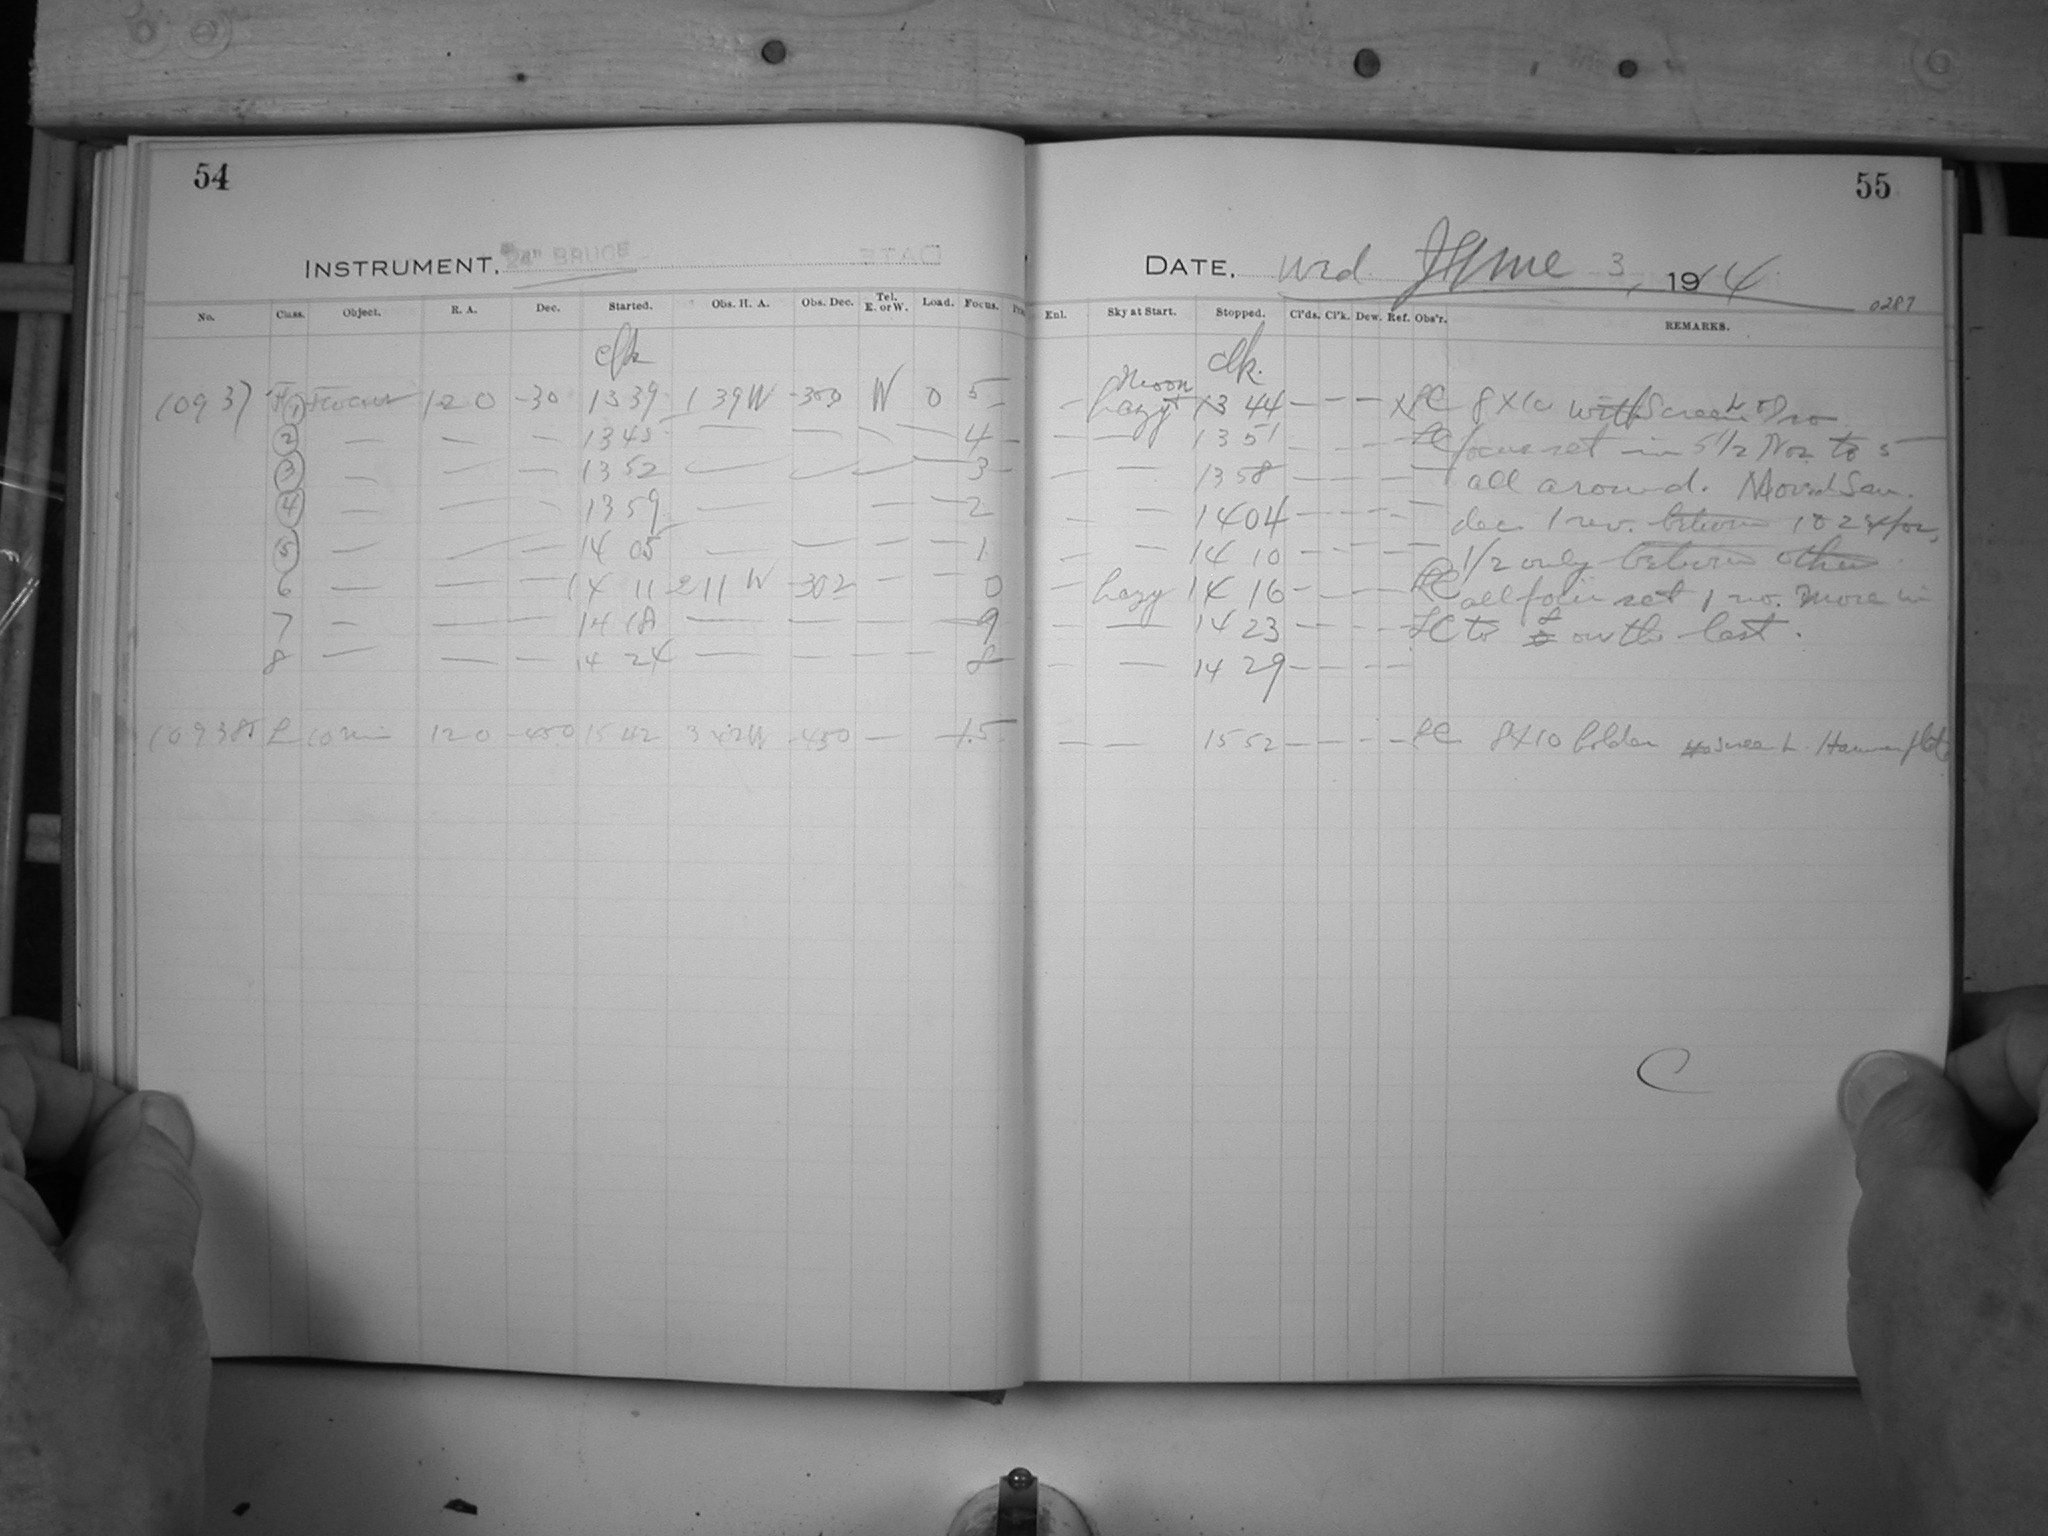 54
55
INSTRUMENT, 24" BRUCE
DATE, Wed. June 3, 1914
0287
No. Class. Object. R. A. Dec. Started. Obs. H. A. Obs. Dec. Tel. E. or W. Load. Focus.
Enl. Sky at Start. Stopped. Cl'ds. Cl'k. Dew. Ref. Obs'r. REMARKS.
clk
clk.
Moon
10937 1 Focus 120 -30 1339 139W -303 W 0 5 — hazy 1344 — — — X LC 8 X 10 with Screen
2 — — — 1345 — — — — 4 — — 1351 — LC focus set in 5 1/2 to 5
3 — — — 1352 — — — — 3 — — 1358 — — — — all around. Moved
4 — — — 1359 — — — 2 — — 1404 — — — — dec. 1 rev. between 1 & 2
5 — — — 1405 — — — — 1 — — 1410 — — — — 1/2 only between other
6 — — — 1411 211 W -302 — — 0 — hazy 1416 — — — LC all four set 1 no. more in
7 — — — 1418 — — — — 9 — — 1423 — — — — LC to on the last.
8 — — — 1424 — — — — 8 — — 1429 — — — —
10938 L 10 min 120 -450 1542 342W -450 — — 1.5 — — 1552 — — — — LC 8X10 holder
C